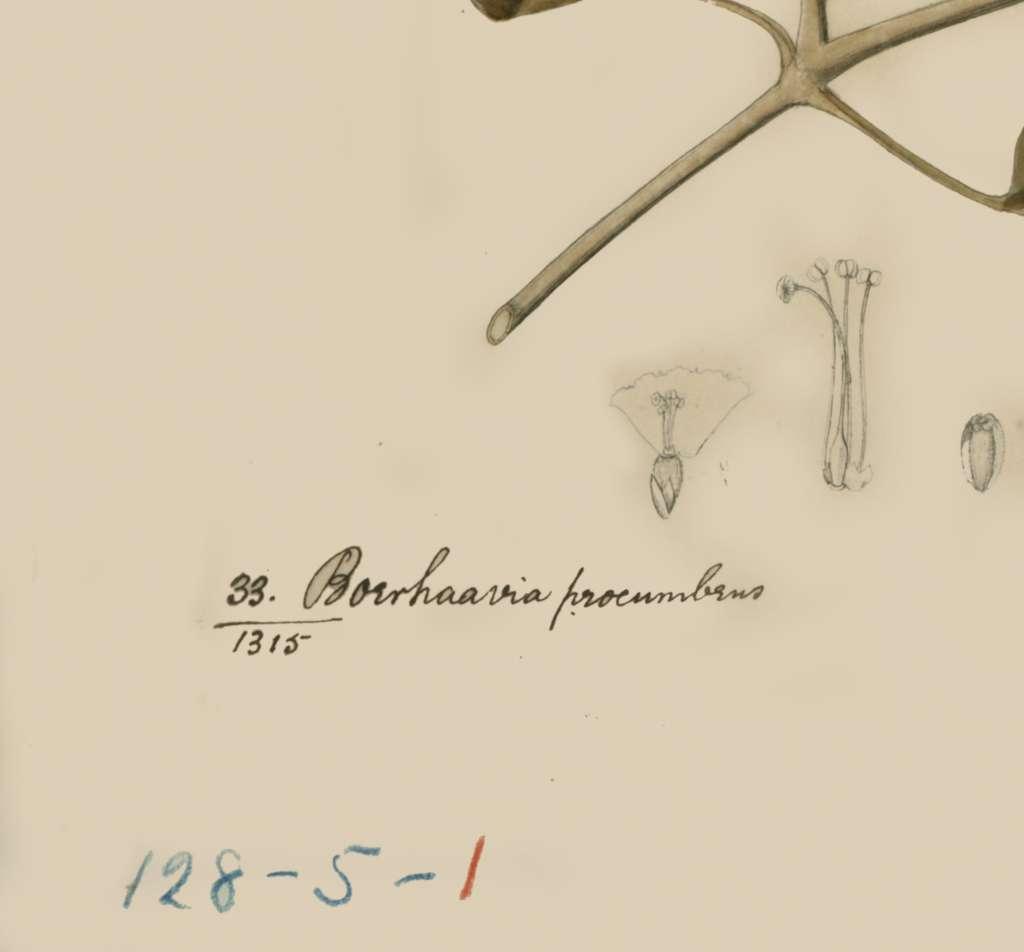 33. Boerhaavia procumbens
1315
128-5-1